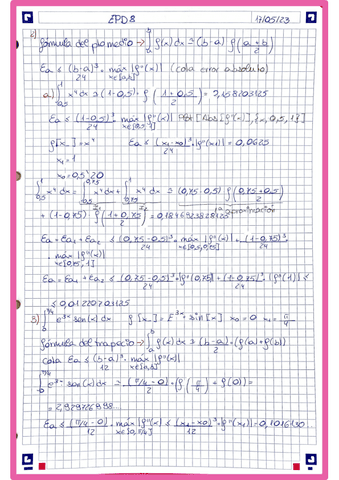 EPD 8 17/05/23
2)
fórmula del promedio → ∫_a^b f(x) dx ≃ (b-a) f(a+b / 2)
Ea ≤ (b-a)³/24 · máx x∈[a,b] |f''(x)| (cota error absoluto)
a) ∫_0,5^1 x⁴ dx ≃ (1-0,5) · f(1+0,5 / 2) =
Ea ≤ (1-0,5)³/24 · máx x∈[0,5,1] |f''(x)| Plot[Abs[f''[x]], {x, 0,5, 1}]
f[x_] = x⁴ Ea ≤ (x₁-x₀)³/24 · |f''(x₁)| = 0,0625
x₁ = 1
x₀ = 0,5
∫_0,5^1 x⁴ dx = ∫_0,5^0,75 x⁴ dx + ∫_0,75^1 x⁴ dx ≃ (0,75-0,5) f(0,75+0,5 / 2)
+ (1-0,75) f(1+0,75 / 2) =
Ea = Ea₁ + Ea₂ ≤ (0,75-0,5)³/24 · máx x∈[0,5,0,75] |f''(x)| + (1-0,75)³/24 ·
· máx x∈[0,75,1] |f''(x)|
Ea = Ea₁ + Ea₂ ≤ (0,75-0,5)³/24 · |f''(0,75)| + (1-0,75)³/24 · |f''(1)| ≤
3) ∫_0^π/4 e^3x sen(x) dx f[x_] = E^3x · sin[x] x₀ = 0 x₁ = π/4
fórmula del trapecio → ∫_a^b f(x) dx ≃ (b-a) · (f(a)+f(b))
cota Ea ≤ (b-a)³/12 · máx x∈[a,b] |f''(x)|
∫_0^π/4 e^3x sen(x) dx ≃ (π/4-0)/2 · (f(π/4) + f(0)) =
Ea ≤ (π/4-0)³/12 · máx x∈[0,π/4] |f''(x)| ≤ (x₁-x₀)³/12 · |f''(x₁)| =